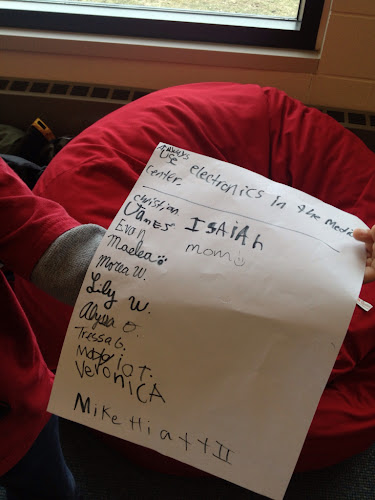 Always
Use electronics in the Media
center.
christian.
James ISAiAh
Evan mom
Maelea
Morea W.
Lily W.
Alyssa O.
Tressa G.
VeroniCA
Mike Hiatt II